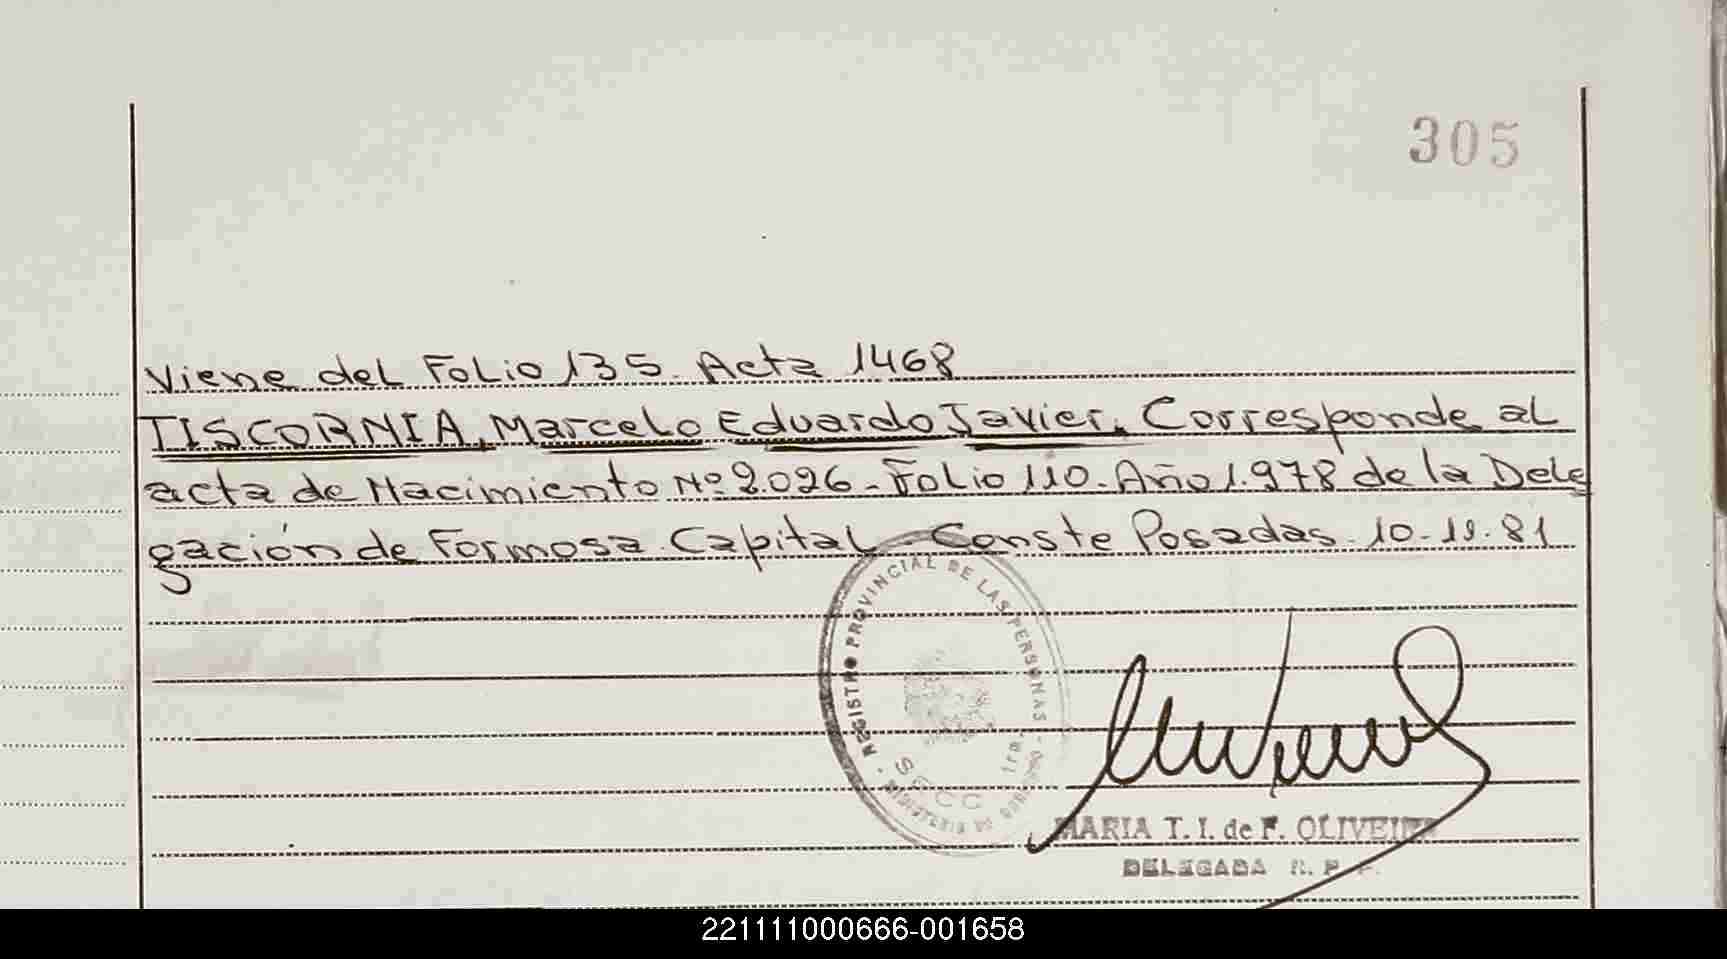 305
Viene del Folio 135. Acta 1468
TISCORNIA, Marcelo Eduardo Javier. Corresponde al
acta de Nacimiento Nº 2.026 - Folio 110. Año 1.978 de la Dele
gación de Formosa. Capital Conste Posadas. 10-11-81
REGISTRO PROVINCIAL DE LAS PERSONAS
SECC 1ra.
MINISTERIO DE GOB
MARIA T. I. de F. OLIVEIRA
DELEGADA R. P. P.
221111000666-001658